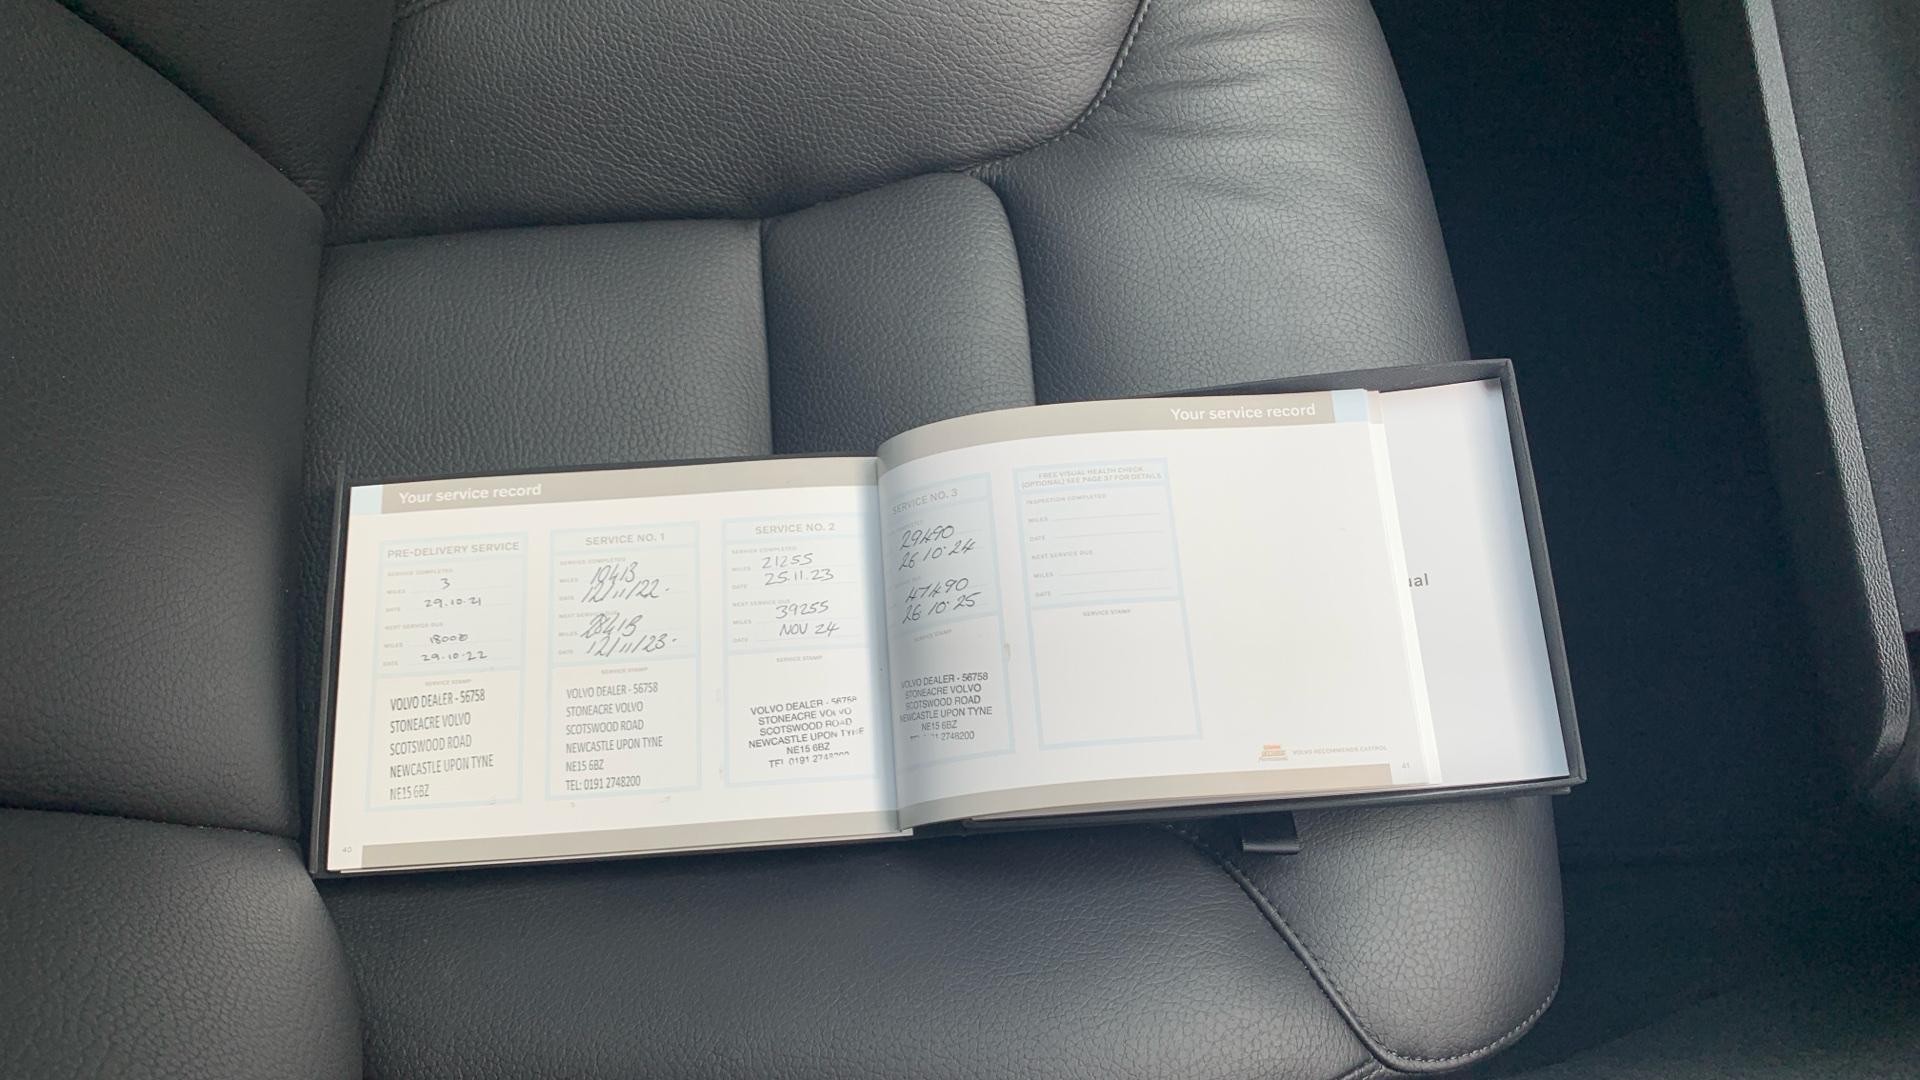 Your service record
PRE-DELIVERY SERVICE
SERVICE COMPLETED
MILES 3
DATE 29.10.21
NEXT SERVICE DUE
MILES 18000
DATE 29.10.22
SERVICE STAMP
VOLVO DEALER - 56758
STONEACRE VOLVO
SCOTSWOOD ROAD
NEWCASTLE UPON TYNE
NE15 6BZ
SERVICE NO. 1
SERVICE COMPLETED
MILES 10413
DATE 12/11/22.
NEXT SERVICE DUE
MILES 28413
DATE 12/11/23.
SERVICE STAMP
VOLVO DEALER - 56758
STONEACRE VOLVO
SCOTSWOOD ROAD
NEWCASTLE UPON TYNE
NE15 6BZ
TEL: 0191 2748200
SERVICE NO. 2
SERVICE COMPLETED
MILES 21255
DATE 25.11.23
NEXT SERVICE DUE
MILES 39255
DATE NOV 24
SERVICE STAMP
VOLVO DEALER - 56758
STONEACRE VOLVO
SCOTSWOOD ROAD
NEWCASTLE UPON TYNE
NE15 6BZ
TEL 0191
40
Your service record
SERVICE NO. 3
29490
26.10.24
47490
26.10.25
SERVICE STAMP
VOLVO DEALER - 56758
STONEACRE VOLVO
SCOTSWOOD ROAD
NEWCASTLE UPON TYNE
NE15 6BZ
2748200
FREE VISUAL HEALTH CHECK
(OPTIONAL) SEE PAGE 37 FOR DETAILS
INSPECTION COMPLETED
MILES
DATE
NEXT SERVICE DUE
MILES
DATE
SERVICE STAMP
VOLVO RECOMMENDS CASTROL
41
ual